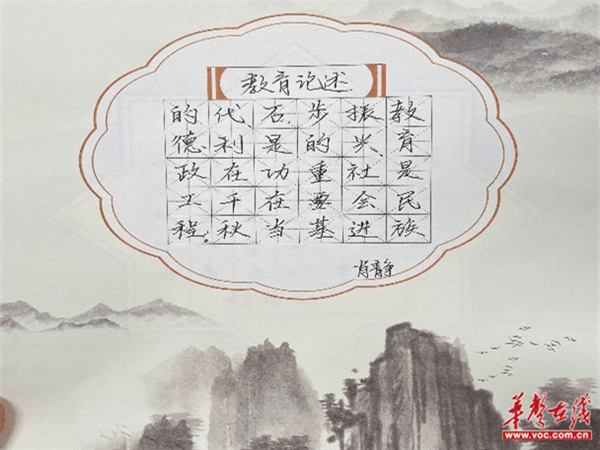 教育论述
教育是民族
振兴、社会进
步的重要基
石,是功在当
代、利在千秋
的德政工程。
肖静
华声在线
www.voc.com.cn